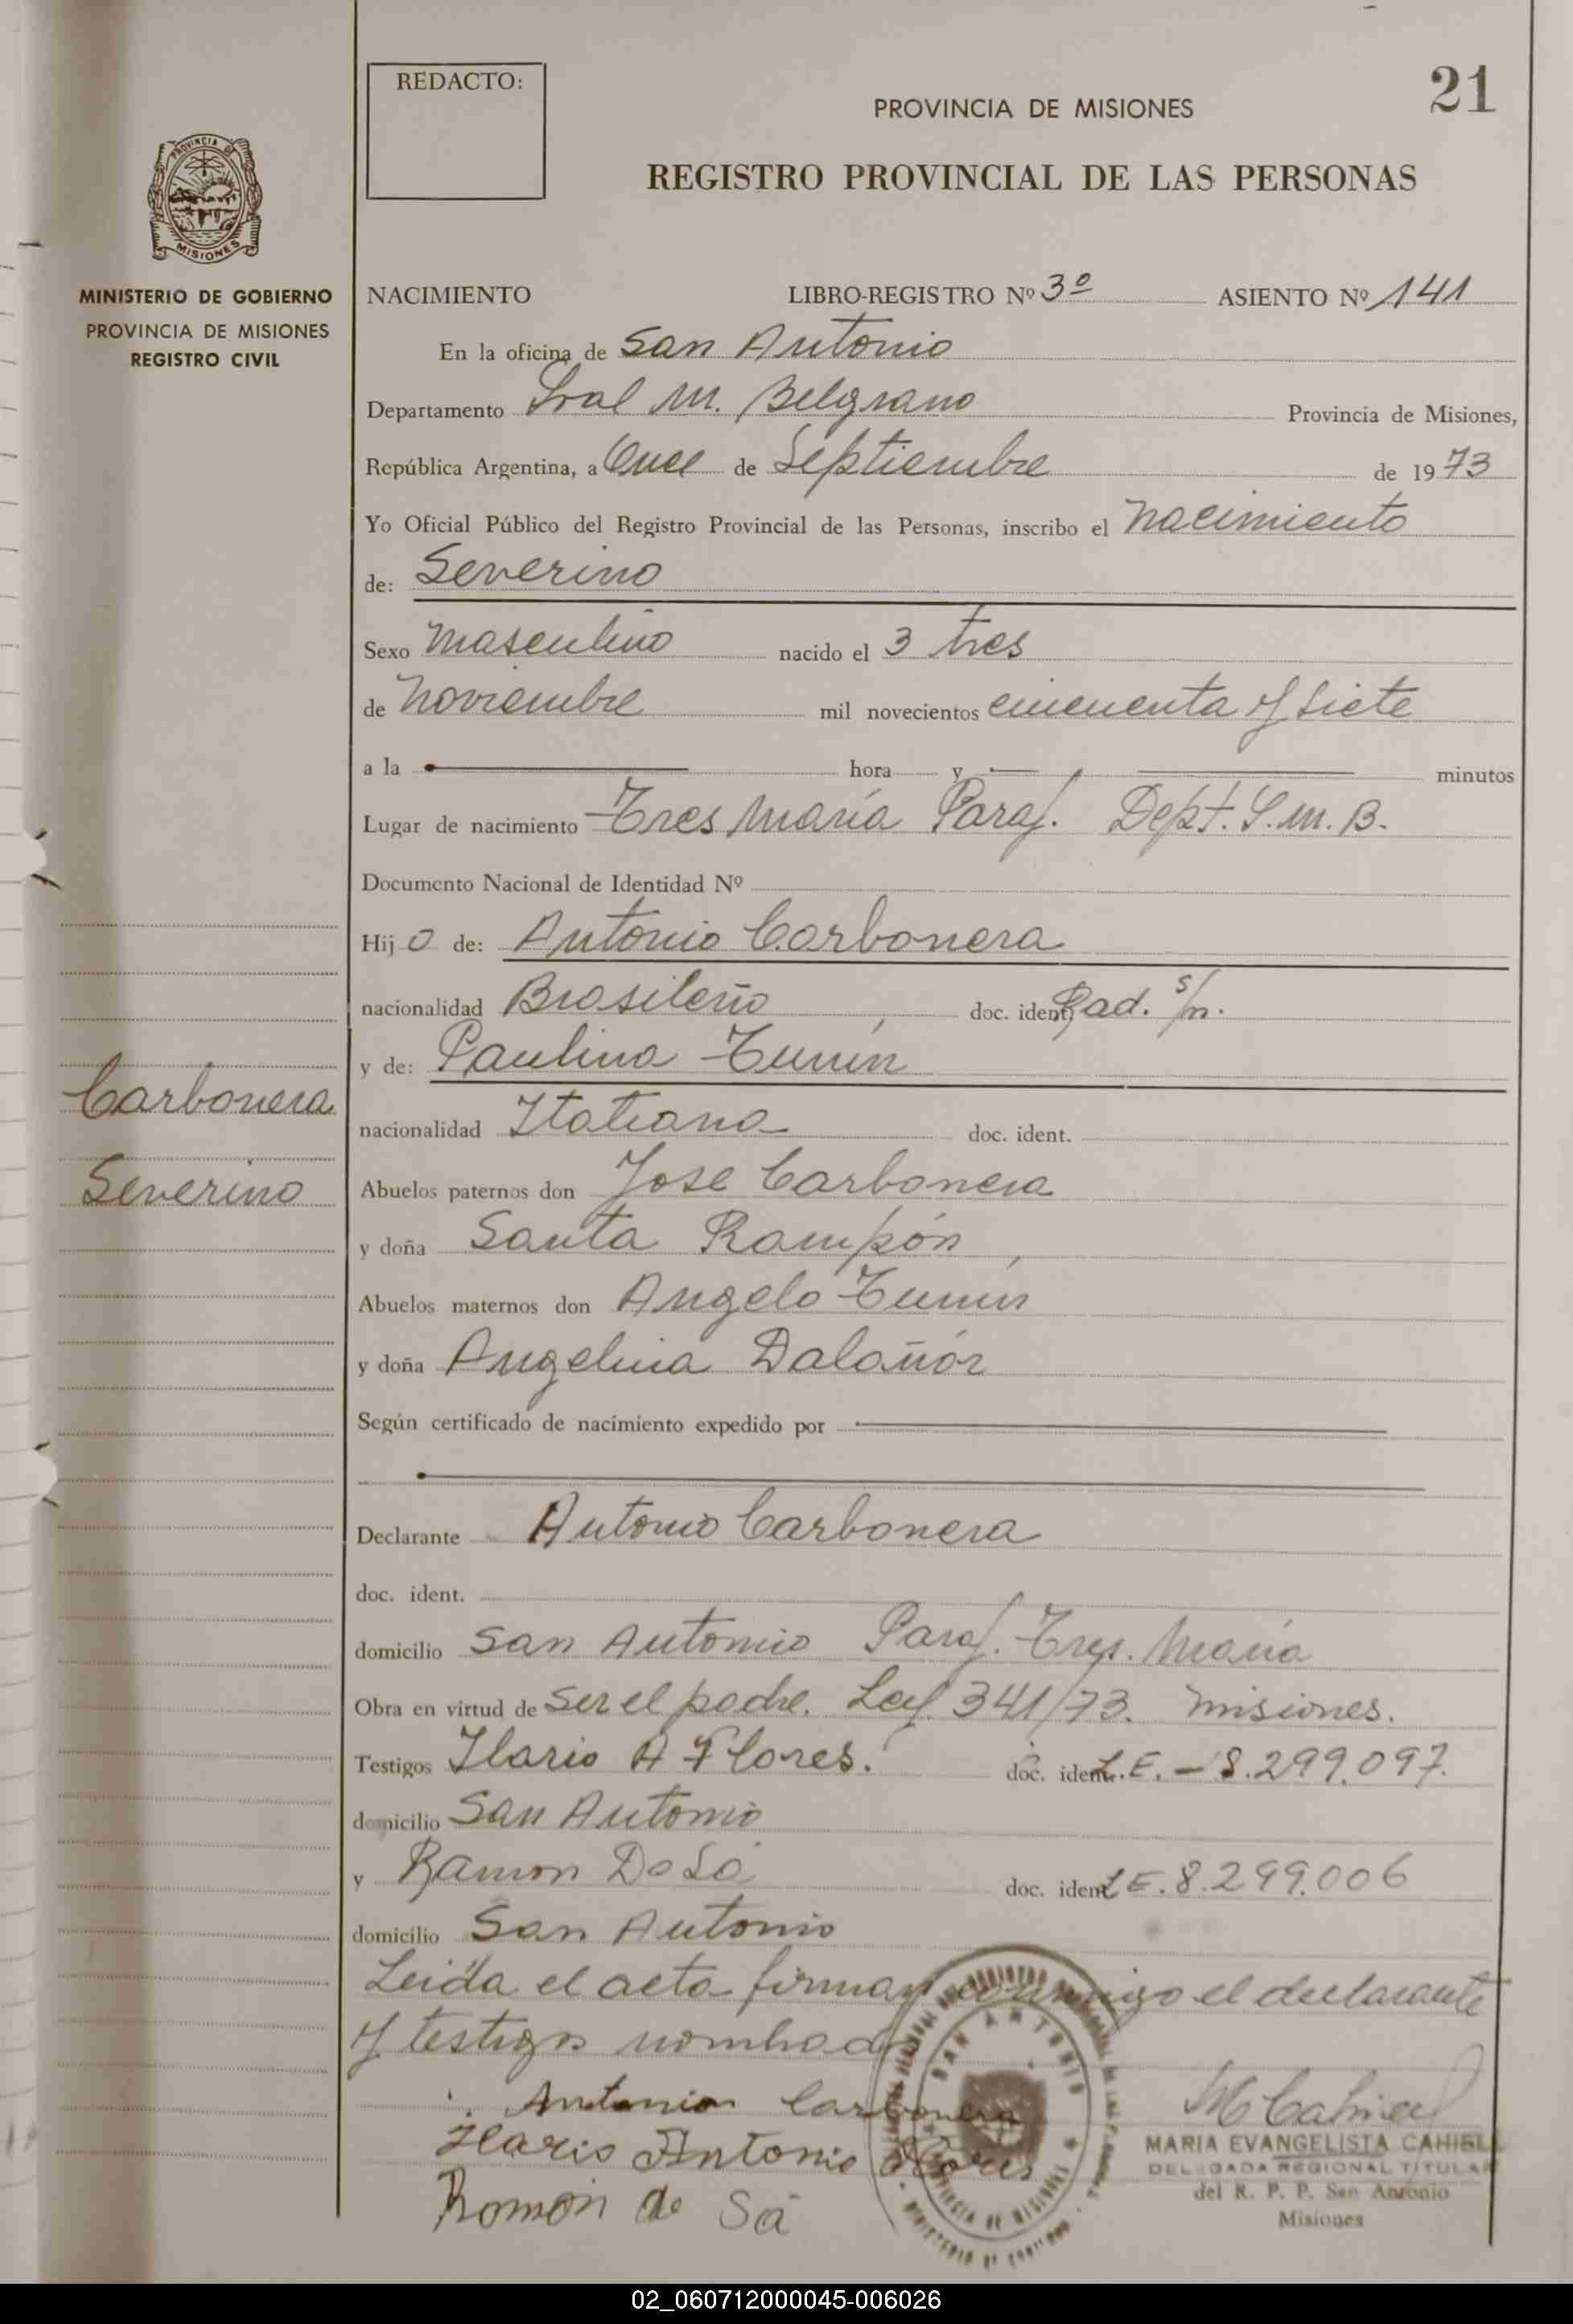 REDACTO:
21
PROVINCIA DE MISIONES
REGISTRO PROVINCIAL DE LAS PERSONAS
PROVINCIA DE
MISIONES
MINISTERIO DE GOBIERNO
PROVINCIA DE MISIONES
REGISTRO CIVIL
NACIMIENTO LIBRO-REGISTRO Nº 3º ASIENTO Nº 141
En la oficina de San Antonio
Departamento Gral M. Belgrano Provincia de Misiones,
República Argentina, a Once de Septiembre de 1973
Yo Oficial Público del Registro Provincial de las Personas, inscribo el nacimiento
de: Severino
Sexo masculino nacido el 3 tres
de noviembre mil novecientos cincuenta y siete
a la hora y minutos
Lugar de nacimiento Tres María Paraj. Dept. G.M.B.
Documento Nacional de Identidad Nº
Hijo de: Antonio Carbonera
nacionalidad Brasileño, doc. ident. Rad. s/n.
y de: Paulina Tunin
nacionalidad Italiana doc. ident.
Carbonera
Severino
Abuelos paternos don Jose Carbonera
y doña Santa Rampón
Abuelos maternos don Angelo Tunin
y doña Angelina Dalañór
Según certificado de nacimiento expedido por
Declarante Antonio Carbonera
doc. ident.
domicilio San Antonio Paraj. Tres. María
Obra en virtud de ser el padre. Ley. 341/73. misiones.
Testigos Ilario A Flores. doc. ident. L.E. - 8.299.097.
domicilio San Antonio
y Ramon Da Sá doc. ident. L E. 8.299.006
domicilio San Antonio
Leida el acta firman conmigo el declarante
y testigos nombrados
Antonio Carbonera
Ilario Antonio Flores
Ramón de Sá
SAN ANTONIO
PROVINCIA DE MISIONES
M Cahiel
MARIA EVANGELISTA CAHIEL
DELEGADA REGIONAL TITULAR
del R. P. P. San Antonio
Misiones
02_060712000045-006026